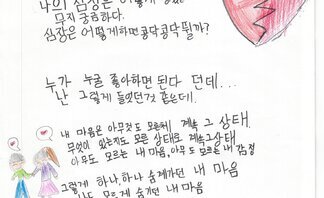 나의 심장은 어떻게
무지 궁금하다.
심장은 어떻게하면 콩닥콩닥 뛸까?
누가 누굴 좋아하면 된다 던데...
난 그렇게 들었던것 같은데.
내 마음은 아무것도 모른체 계속 그 상태
무엇이 있는지도 모른 상태로 계속그상태
아무도 모르는 내 마음, 아무도 모르는 내 감정
그렇게 하나, 하나 숨겨가던 내 마음
모르게 숨기던 내 마음